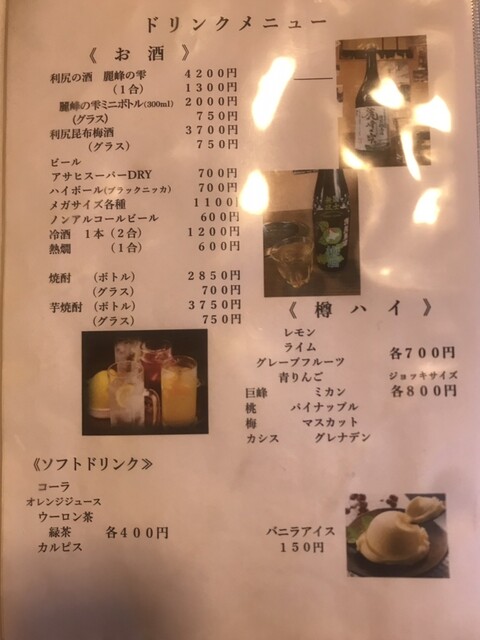 ドリンクメニュー
《 お 酒 》
利尻の酒 麗峰の雫 4200円
(1合) 1300円
麗峰の雫ミニボトル(300ml) 2000円
(グラス) 750円
利尻昆布梅酒 3700円
(グラス) 750円
ビール
アサヒスーパーDRY 700円
ハイボール(ブラックニッカ) 700円
メガサイズ各種 1100円
ノンアルコールビール 600円
冷酒 1本(2合) 1200円
熱燗 (1合) 600円
焼酎 (ボトル) 2850円
(グラス) 700円
芋焼酎 (ボトル) 3750円
(グラス) 750円
《 樽 ハ イ 》
レモン
ライム
グレープフルーツ 各700円
青りんご ジョッキサイズ
巨峰 ミカン 各800円
桃 パイナップル
梅 マスカット
カシス グレナデン
《ソフトドリンク≫
コーラ
オレンジジュース
ウーロン茶
緑茶 各400円
カルピス
バニラアイス
150円